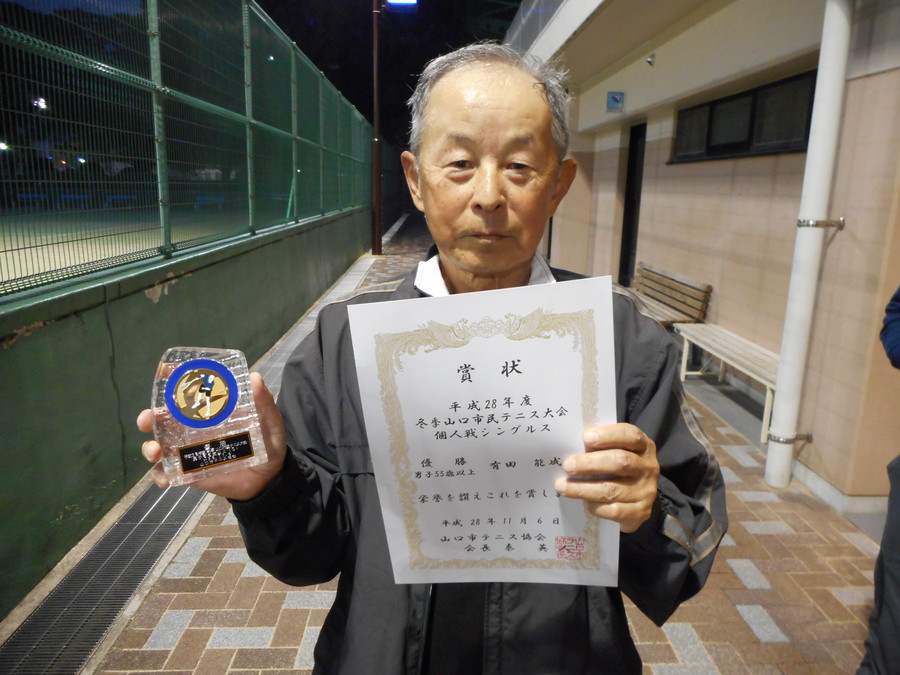 賞状
平成28年度
冬季山口市民テニス大会
個人戦シングルス
優勝 有田 能成
男子55歳以上
栄誉を讃えこれを賞しま
平成28年11月6日
山口市テニス協会
会長 泰 英